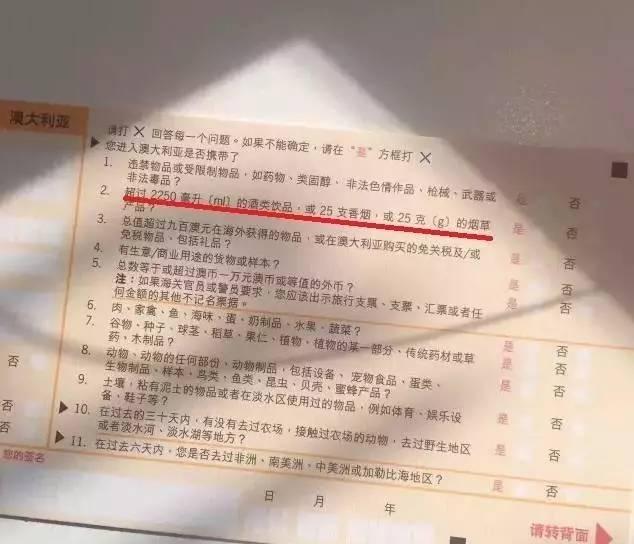 澳大利亚
请打 X 回答每一个问题。如果不能确定，请在“是”方框打 X
您进入澳大利亚是否携带了
1. 违禁物品或受限制物品，如药物、类固醇、非法色情作品、枪械、武器或 是 否
非法毒品？
2. 超过 2250 毫升（ml）的酒类饮品，或 25 支香烟，或 25 克（g）的烟草 是 否
产品？
3. 总值超过九百澳元在海外获得的物品，或在澳大利亚购买的免关税及/或 是 否
免税物品、包括礼品？
4. 有生意/商业用途的货物或样本？ 是 否
5. 总数等于或超过澳币一万元澳币或等值的外币？ 是 否
注：如果海关官员或警员要求，您应该出示旅行支票、支票、汇票或者任
何金额的其他不记名票据。
6. 肉、家禽、鱼、海味、蛋、奶制品、水果、蔬菜？ 是 否
7. 谷物、种子、球茎、稻草、果仁、植物、植物的某一部分、传统药材或草 是 否
药、木制品？
8. 动物、动物的任何部份、动物制品，包括设备、宠物食品、蛋类、 是 否
生物制品、样本、鸟类、鱼类、昆虫、贝壳、蜜蜂产品？
9. 土壤，粘有泥土的物品或者在淡水区使用过的物品，例如体育、娱乐设 是 否
备、鞋子等？
10. 在过去的三十天内，有没有去过农场，接触过农场的动物，去过野生地区 是 否
或者淡水河、淡水湖等地方？
11. 在过去六天内，您是否去过非洲、南美洲，中美洲或加勒比海地区？ 是 否
否
否
否
您的签名
日 月 年
请转背面